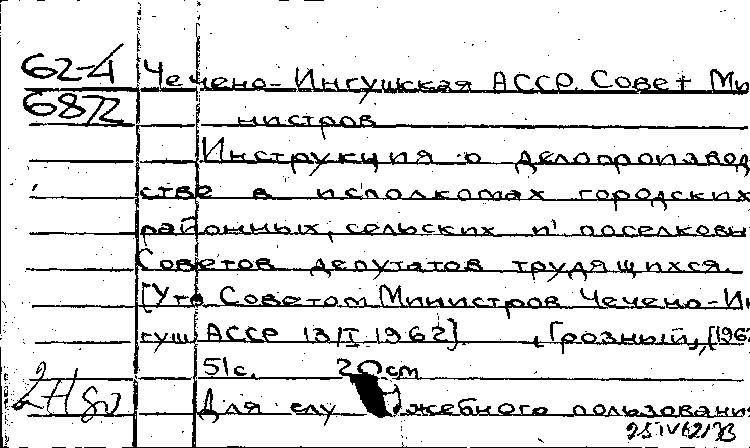 62-4 Чечено-Ингушская АССР. Совет Ми
6872 нистров
Инструкция о делопроизвод
стве в исполкомах городских
районных, сельских и поселковы
Советов депутатов трудящихся.
[Утв Советом Министров Чечено-Ин
гуш АССР 13/I 1962] , Грозный, [1962
51с. 20 cm
Для слу жебного пользовани